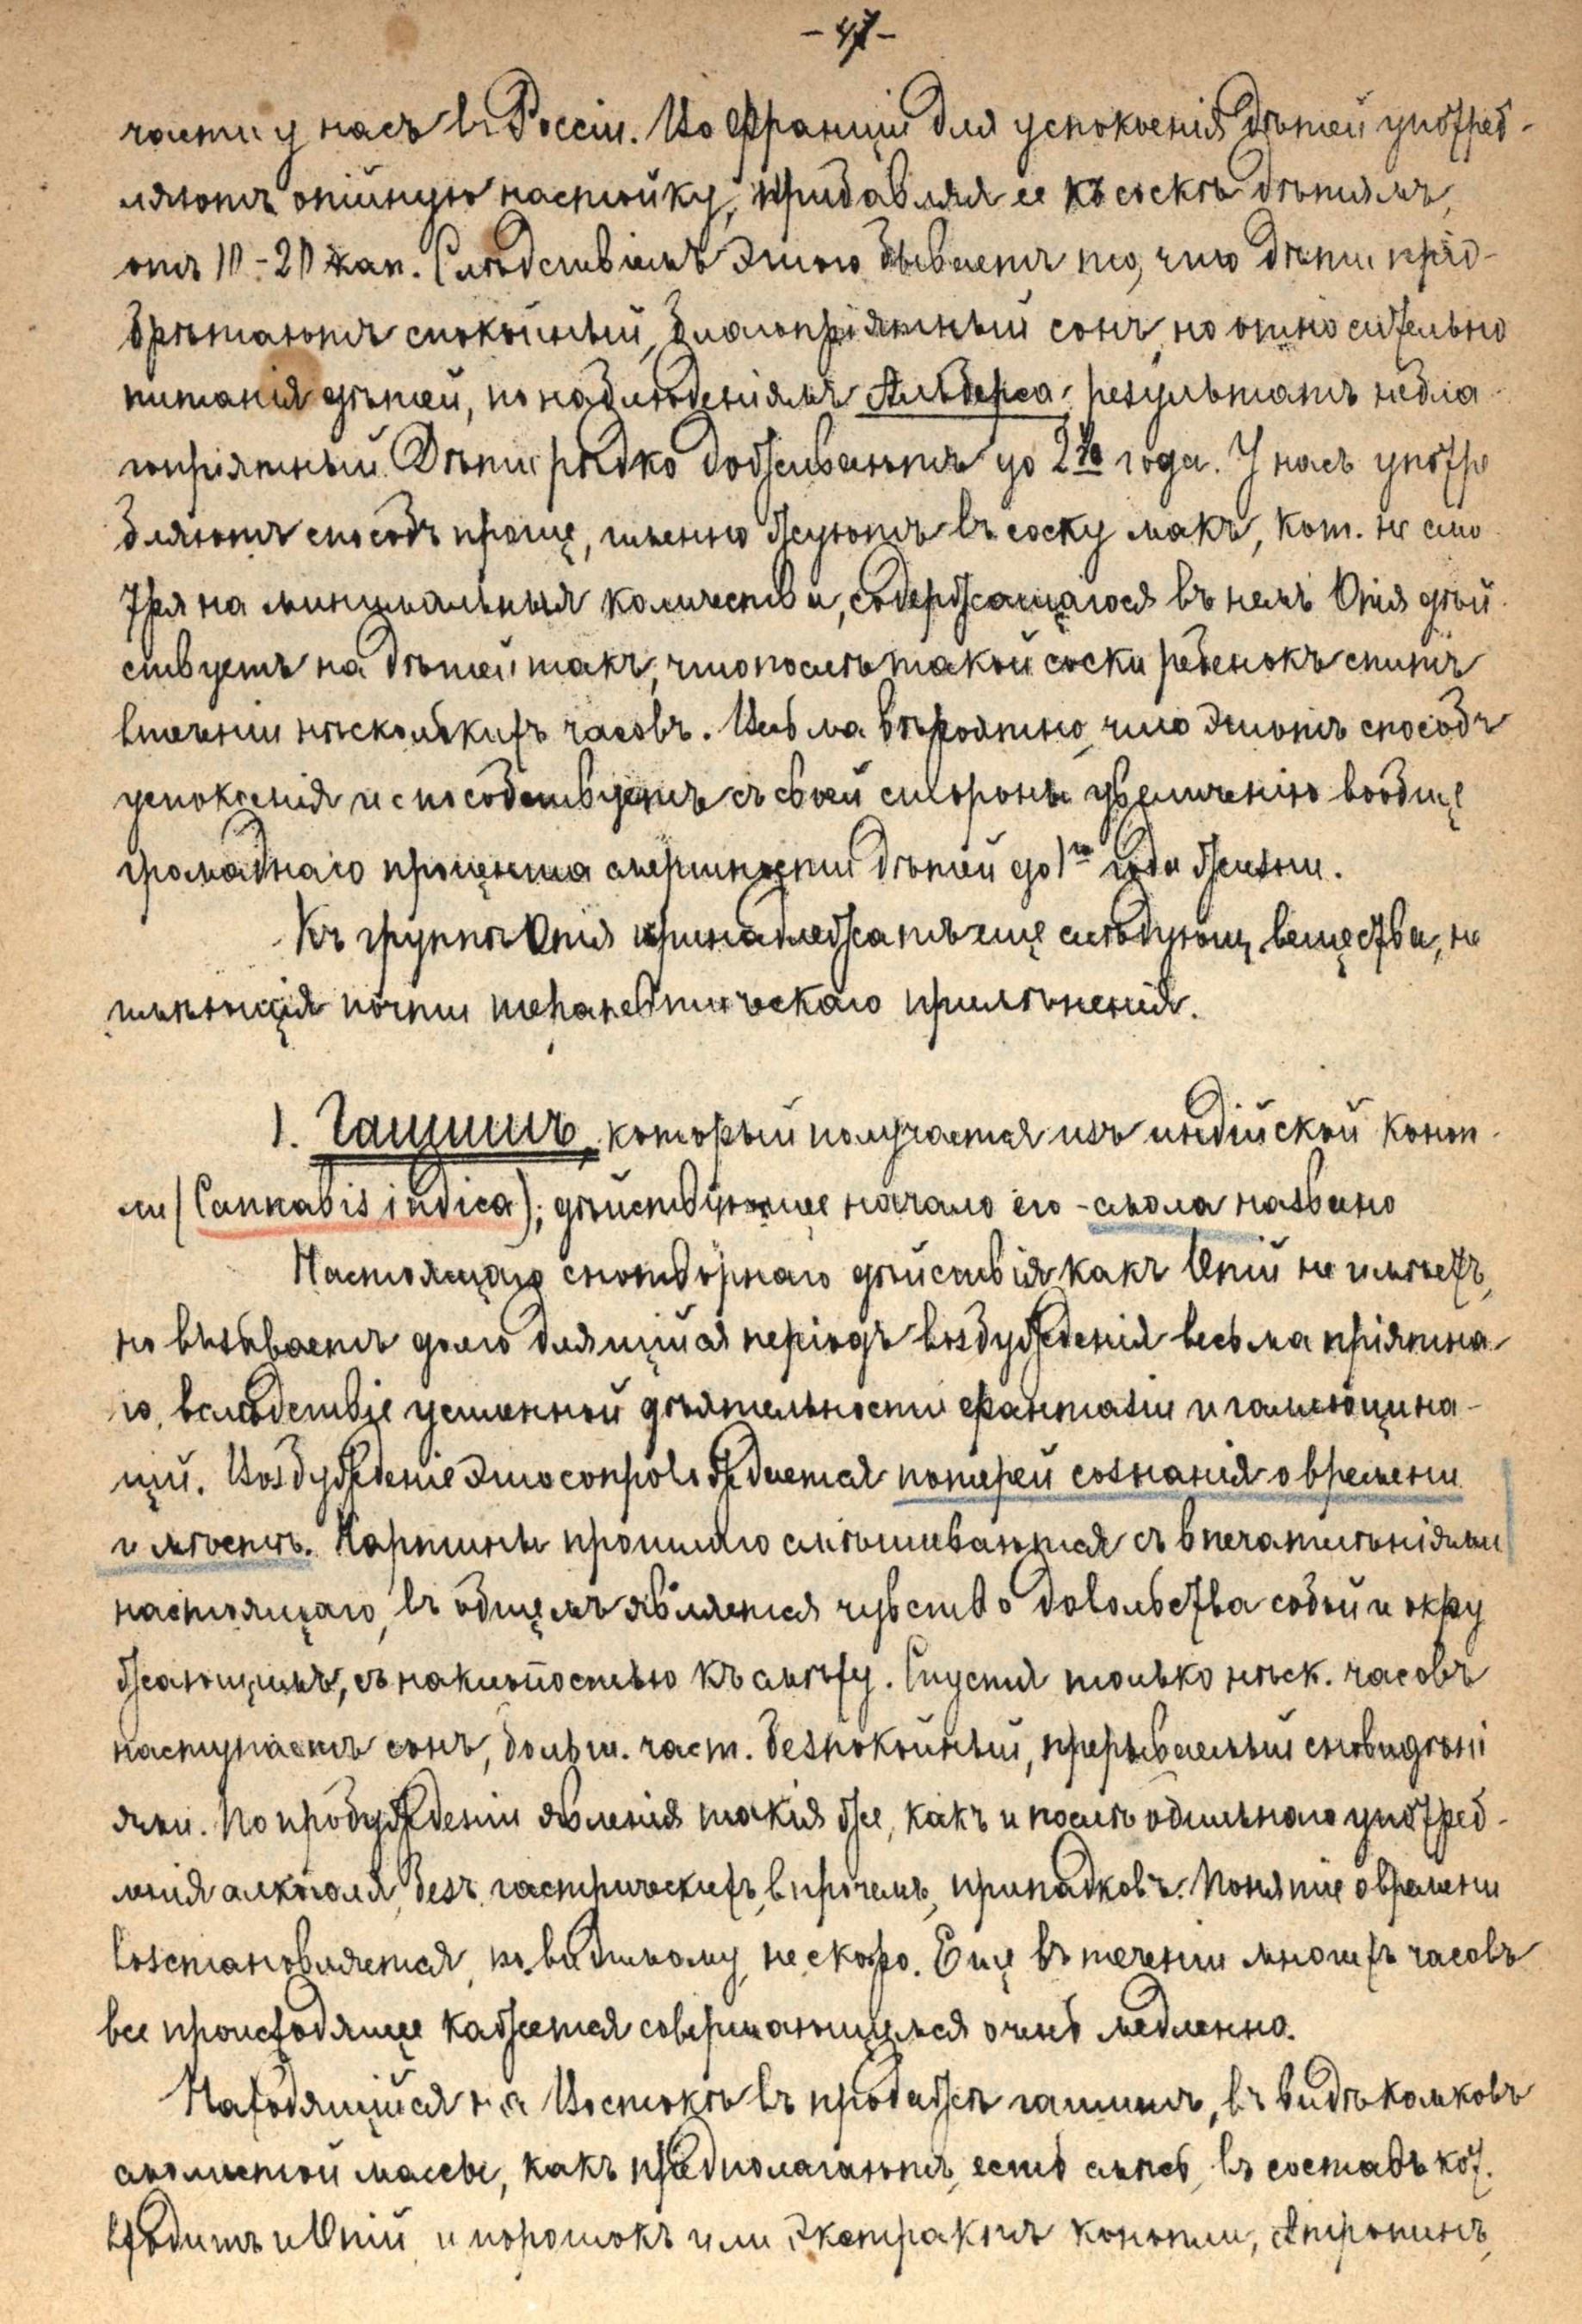 - 47 -
части у насъ въ Россіи. Во Франціи для успокоенія дѣтей употреб-
ляютъ опійную настойку, придавляя ее къ соскѣ дѣтямъ,
отъ 10-20 кап. Слѣдствіемъ этого бываетъ то, что дѣти пріо-
брѣтаютъ спокойный, благопріятный сонъ, но относительно
питанія дѣтей, по наблюденіямъ Альберса, результатъ небла-
гопріятный. Дѣти рѣдко доживаютъ до 2го года. У насъ употре
бляютъ способъ проще, именно жуютъ въ соску макъ, кот. не смо
тря на минимальныя количества, содержащагося въ немъ Опія дѣй
ствуетъ на дѣтей такъ, что послѣ такой соски ребенокъ спитъ
втеченіи нѣсколькихъ часовъ. Весьма вѣроятно, что этотъ способъ
успокоенія и способствуетъ съ своей стороны увеличенію вообще
громаднаго процента смертности дѣтей до 1го года жизни.
Къ группѣ Опія принадлежатъ еще слѣдующ. вещества, не
имѣющія почти терапевтическаго примѣненія.
1. Гашишъ, который получается изъ индійской коноп-
ли (Cannabis indica); дѣйствующее начало его - смола названо
Настоящаго снотворнаго дѣйствія какъ Опій не имѣетъ,
но вызываетъ долго длящійся періодъ возбужденія весьма пріятна-
го, вслѣдствіе усиленной дѣятельности фантазіи и галлюцина-
цій. Возбужденіе это сопровождается потерей сознанія о времени
и мѣстѣ. Картины прошлаго смѣшиваются съ впечатлѣніями
настоящаго, въ общемъ является чувство довольства собой и окру
жающимъ, съ наклонностью къ смѣху. Спустя только нѣск. часовъ
наступаетъ сонъ, больш. част. безпокойный, прерываемый сновидѣні
ями. По пробужденіи явленія такія же, какъ и послѣ обильнаго употреб-
ленія алкоголя, безъ гастрическихъ, впрочемъ, припадковъ. Понятіе о времени
возстановляется, по видимому, не скоро. Еще въ теченіи многихъ часовъ
все происходящее кажется совершающимся очень медленно.
Находящійся на Востокѣ въ продажѣ гашишъ, въ видѣ комковъ
смолистой массы, какъ предполагаютъ, есть смѣсь, въ составъ кот.
входитъ и Опій и порошокъ или экстрактъ конопли, Атропинъ,